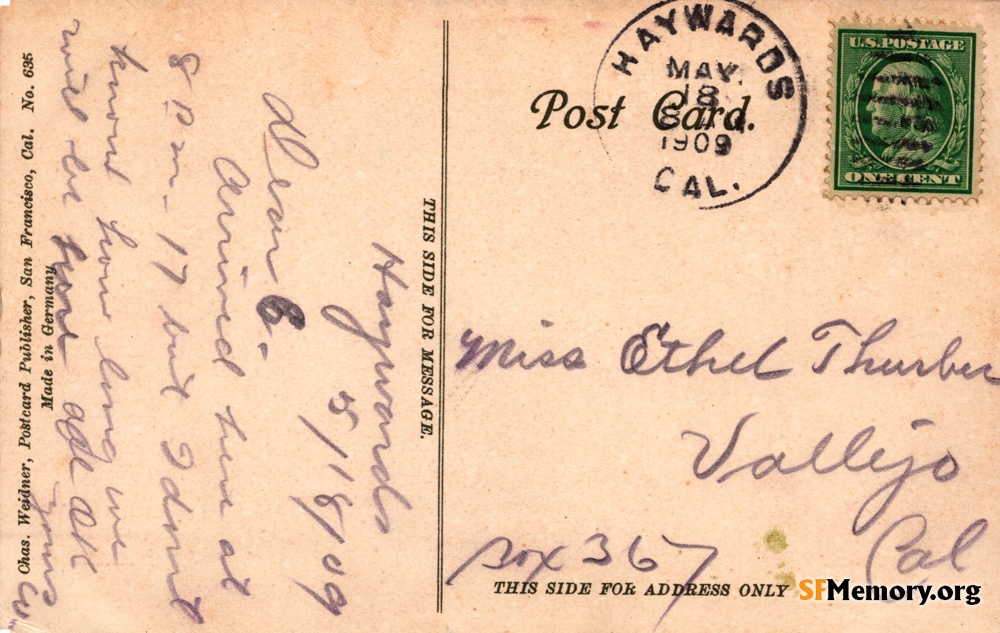 Post Card.
HAYWARDS
MAY.
18
1909
CAL.
U.S.POSTAGE
ONE CENT
THIS SIDE FOR MESSAGE.
Haywards
5/18/09
Dear E.
Arrived here at
8 Pm - 17 but I dont
know how long we
will be here all OK
yours
Chas. Weidner, Postcard Publisher, San Francisco, Cal. No. 635
Made in Germany
Miss Ethel Thurber
Vallejo
Cal
Box 367
THIS SIDE FOR ADDRESS ONLY
SFMemory.org